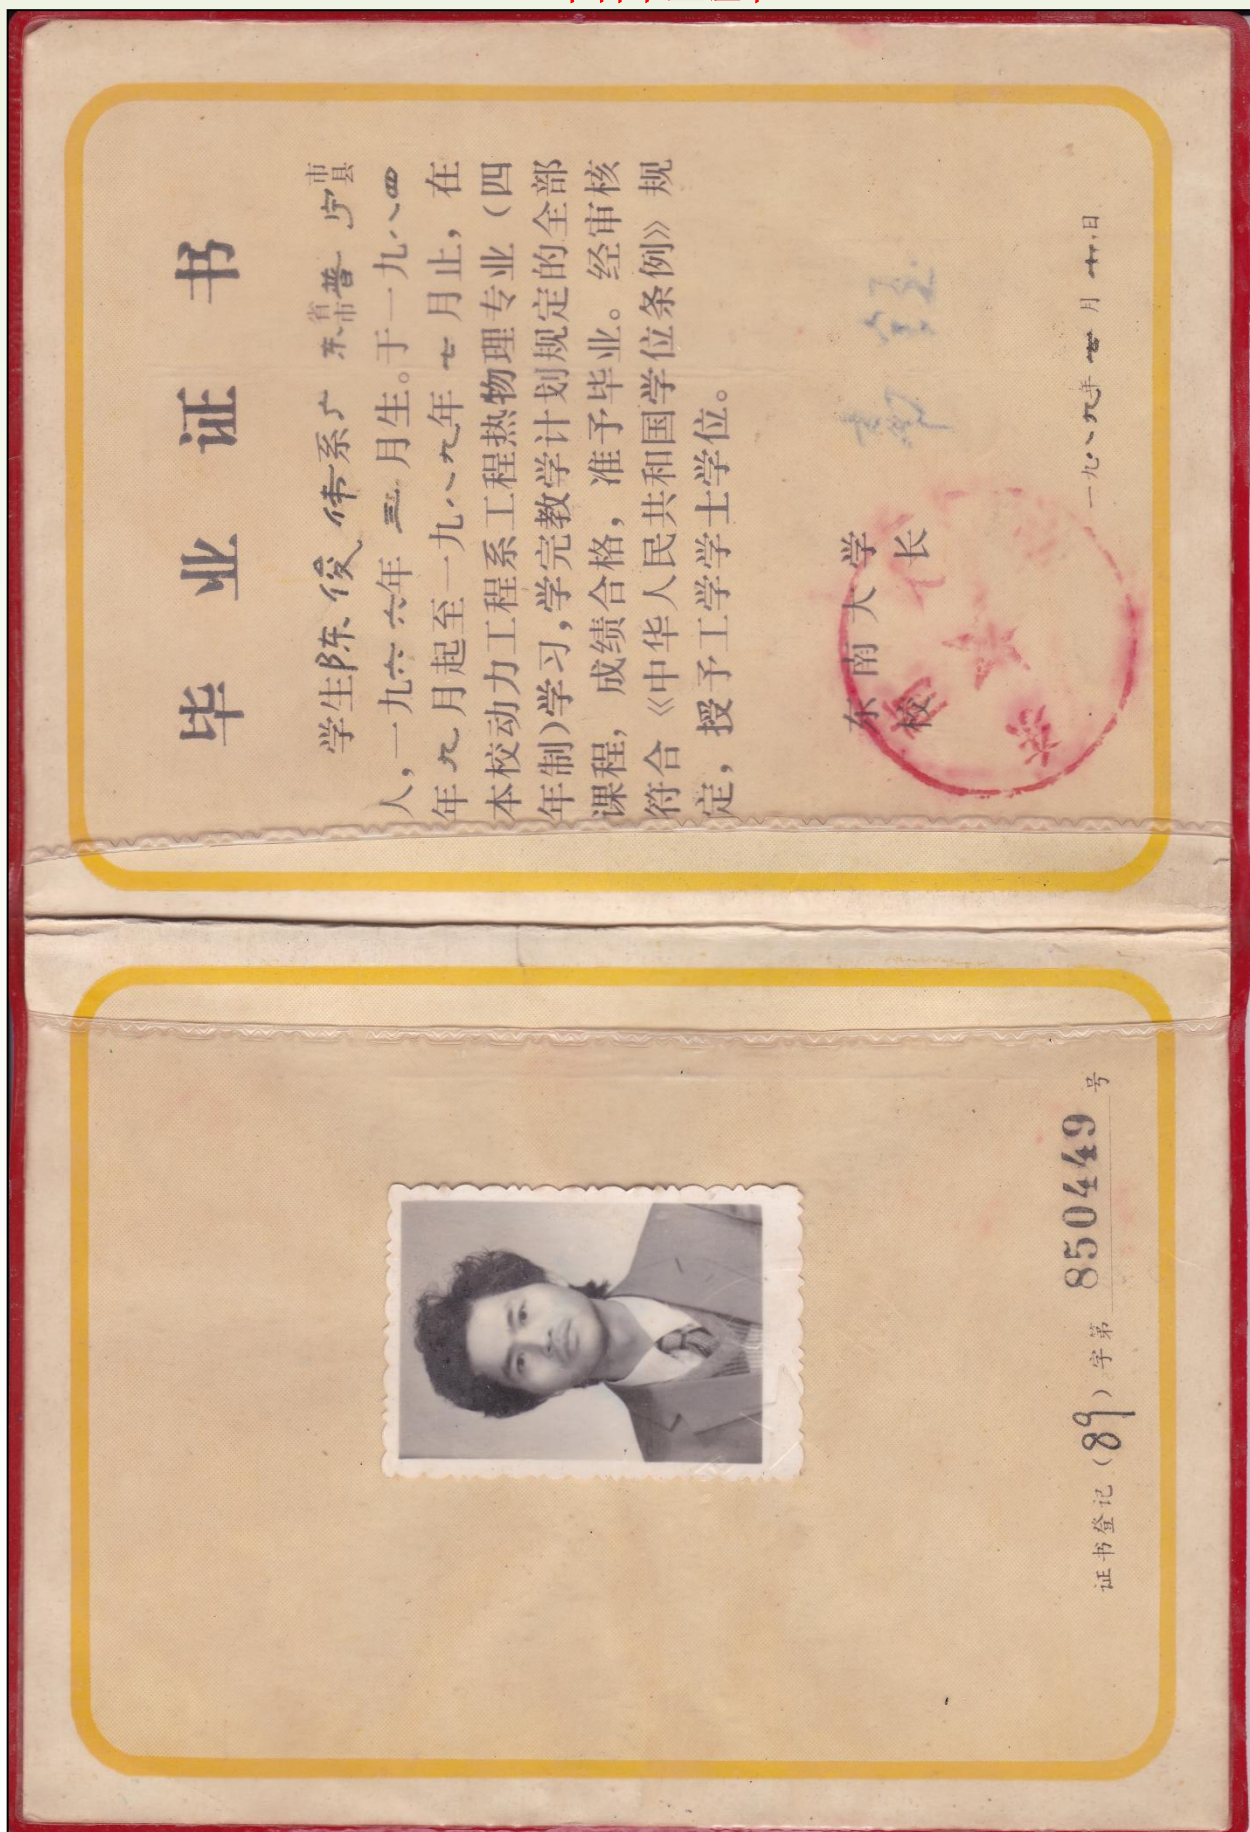 毕业证书
学生陈俊伟系广东省市普宁市县
人,一九六六年三月生。于一九八四
年九月起至一九八九年七月止,在
本校动力工程系工程热物理专业(四
年制)学习,学完教学计划规定的全部
课程,成绩合格,准予毕业。经审核
符合《中华人民共和国学位条例》规
定,授予工学学士学位。
东南大学
校长
一九八九年七月十日
证书登记(89)字第850449号